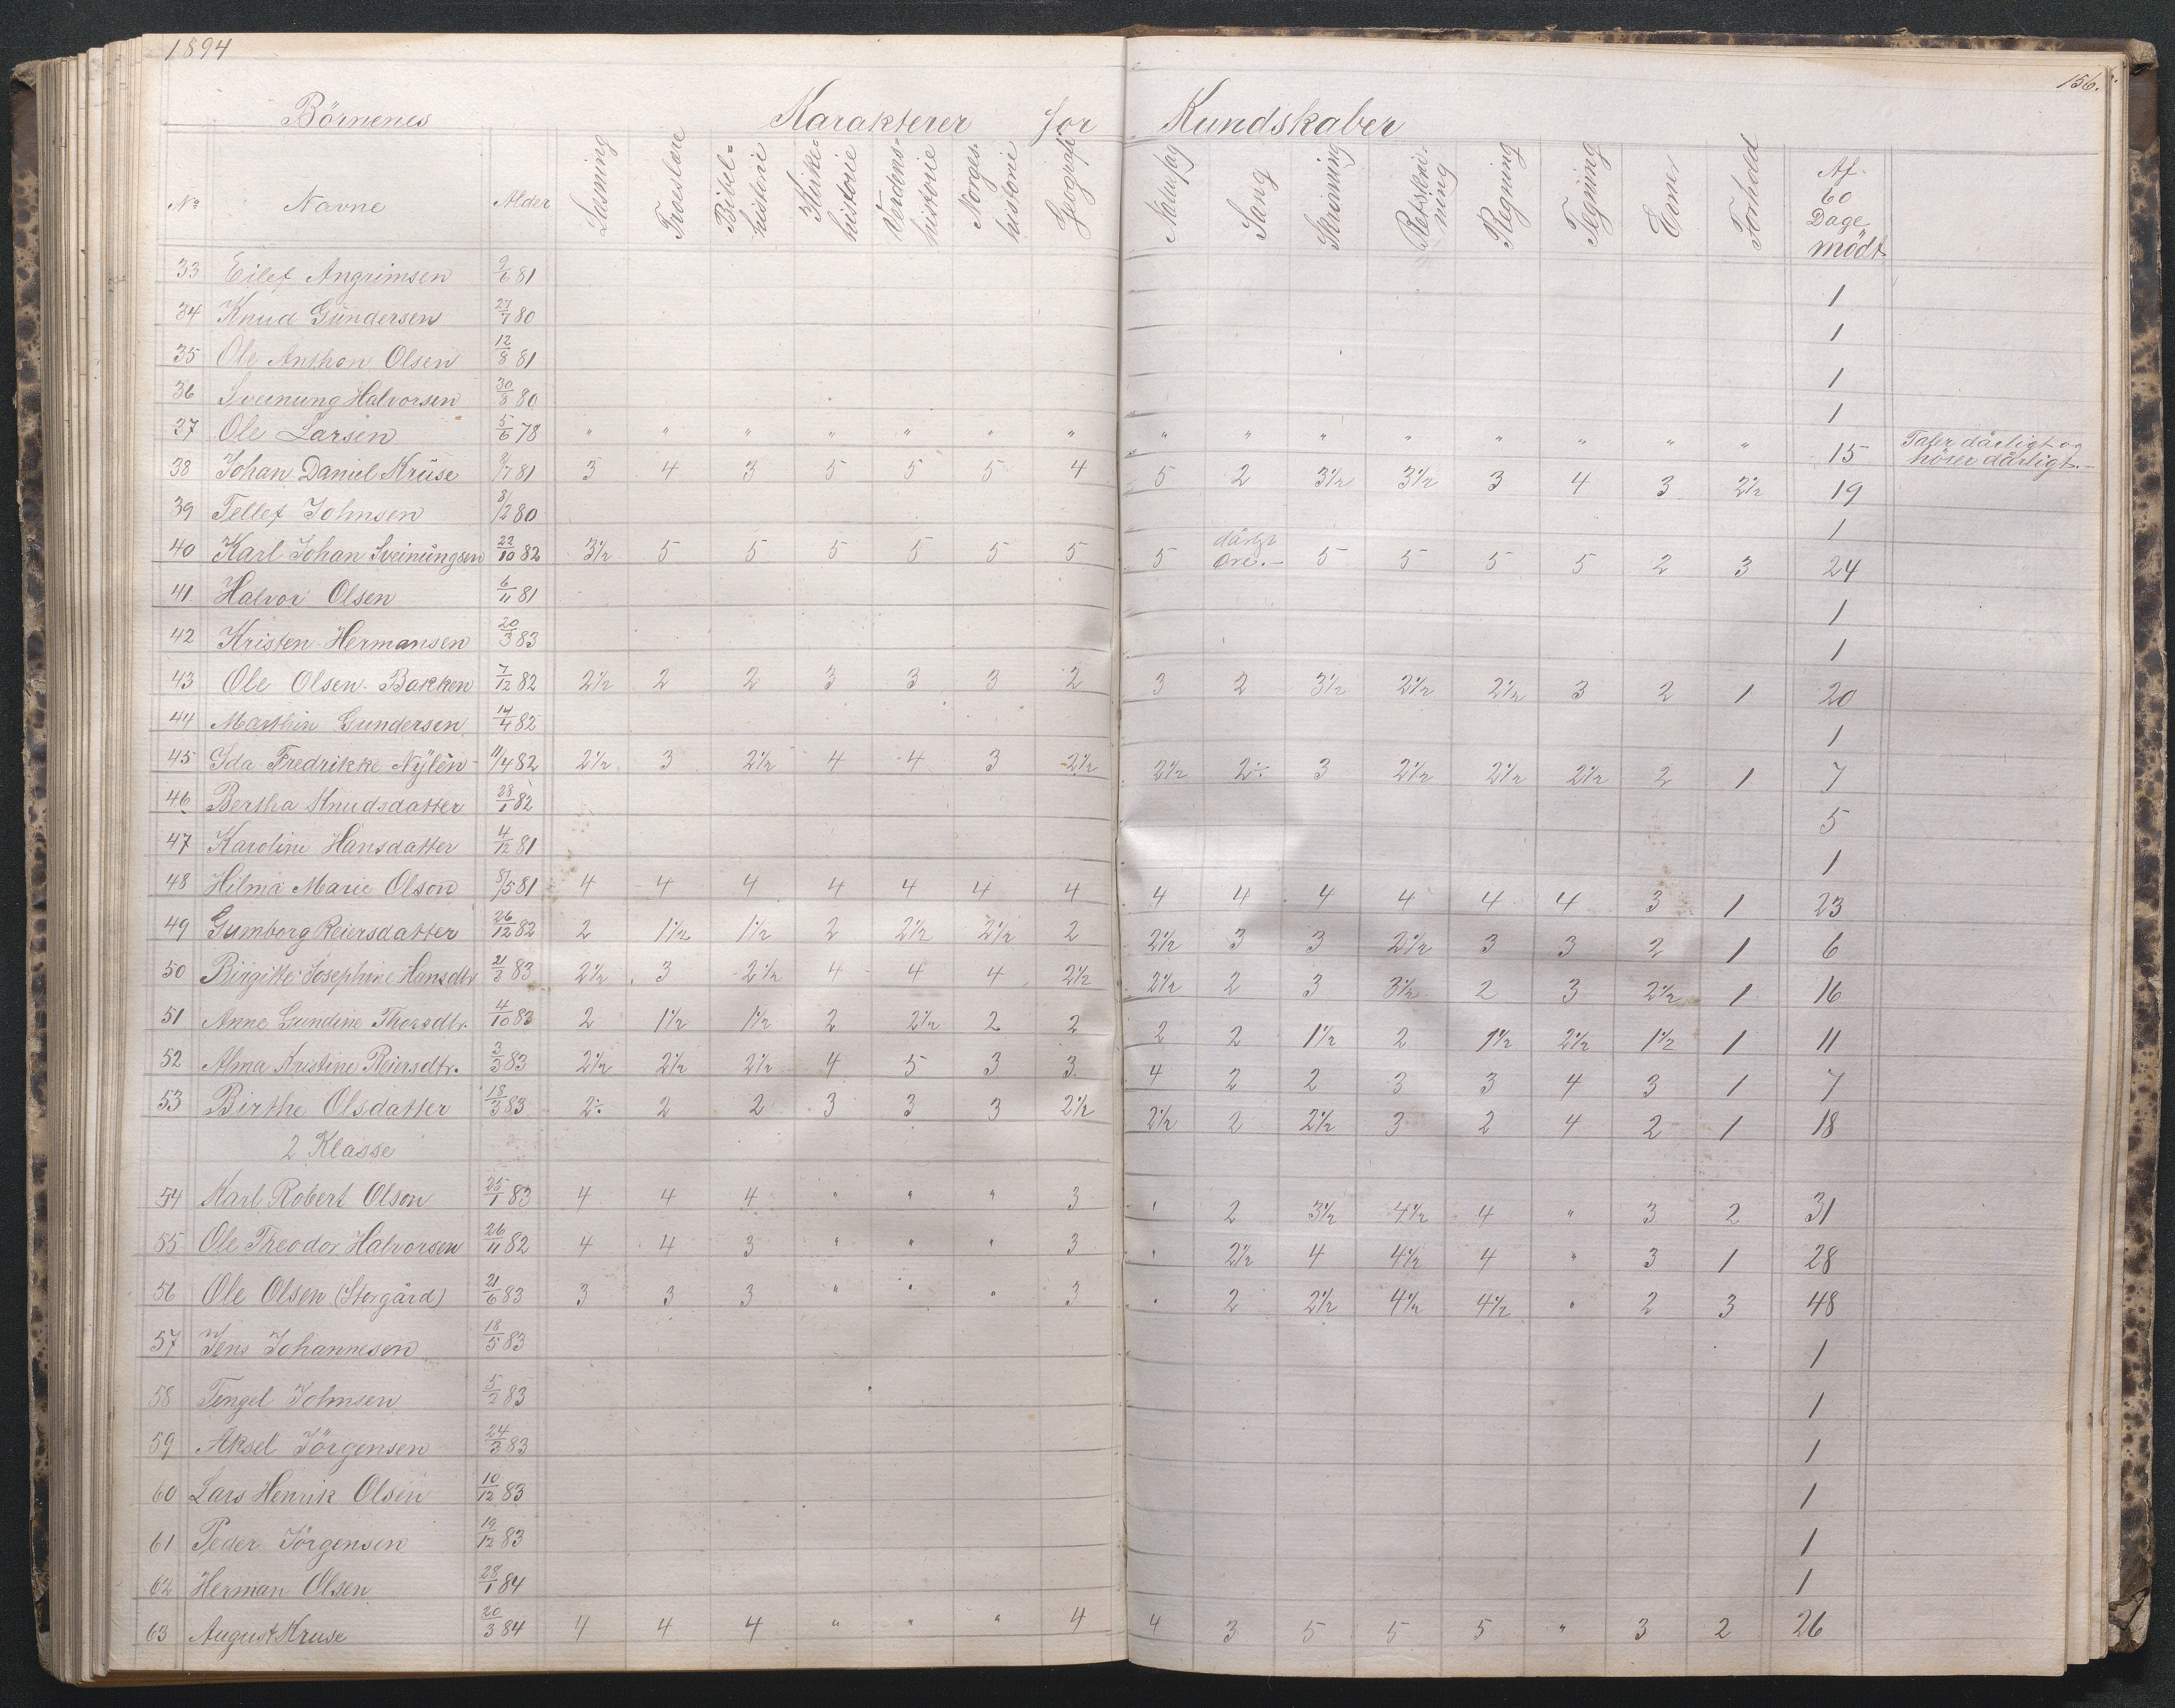 1894
156.
Börnenes Karakterer for Kundskaber
No Navne Alder Læsning Troeslære Bibelhistorie Kirkehistorie Verdenshistorie Norgeshistorie Geografi Naturfag Sang Skrivning Retskrivning Regning Tegning Evne Forhold Af 60 Dage mødt
33 Eilef Angrimsen 9/6 81 1
34 Knud Gundersen 27/7 80 1
35 Ole Anthon Olsen 12/8 81 1
36 Sveinung Halvorsen 30/8 80 1
37 Ole Larsen 5/6 78 " " " " " " " " " " " " " " " 15 Taler dårligt og hörer dårligt.-
38 Johan Daniel Kruse /7 81 3 4 3 5 5 5 4 5 2 3½ 3½ 3 4 3 2½ 19
39 Tellef Johnsen 8/2 80 1
40 Karl Johan Sveinungsen 22/10 82 3½ 5 5 5 5 5 5 5 dårligt Øre.- 5 5 5 5 2 3 24
41 Halvor Olsen 6/11 81 1
42 Kristen Hermansen 20/3 83 1
43 Ole Olsen Bakken 7/12 82 2½ 2 2 3 3 3 2 3 2 3½ 2½ 2½ 3 2 1 20
44 Marthin Gundersen 14/4 82 1
45 Ida Fredrikke Nylèn 11/4 82 2½ 3 2½ 4 4 3 2½ 2½ 2÷ 3 2½ 2½ 2½ 2 1 7
46 Bertha Knudsdatter 28/1 82 5
47 Karoline Hansdatter 4/12 81 1
48 Hilma Marie Olson 31/5 81 4 4 4 4 4 4 4 4 4 4 4 4 4 3 1 23
49 Gumborg Reiersdatter 26/12 82 2 1½ 1½ 2 2½ 2½ 2 2½ 3 3 2½ 3 3 2 1 6
50 Birgitte Josephine Hansdtr 21/3 83 2½ 3 2½ 4 4 4 2½ 2½ 2 3 3½ 2 3 2½ 1 16
51 Anne Gundine Thorsdtr. 4/10 83 2 1½ 1½ 2 2½ 2 2 2 2 1½ 2 1½ 2½ 1½ 1 11
52 Alma Kristine Reiersdtr. 3/3 83 2½ 2½ 2½ 4 5 3 3 4 2 2 3 3 4 3 1 7
53 Birthe Olsdatter 18/3 83 2÷ 2 2 3 3 3 2½ 2½ 2 2½ 3 2 4 2 1 18
2 Klasse
54 Karl Robert Olson 25/1 83 4 4 4 " " " 3 " 2 3½ 4½ 4 " 3 2 31
55 Ole Theodor Halvorsen 26/11 82 4 4 3 " " " 3 " 2½ 4 4½ 4 " 3 1 28
56 Ole Olsen (Storgård) 21/6 83 3 3 3 " " " 3 " 2 2½ 4½ 4½ " 2 3 48
57 Jens Johannesen 18/5 83 1
58 Tengel Johnsen 5/2 83 1
59 Aksel Jörgensen 24/3 83 1
60 Lars Henrik Olsen 10/12 83 1
61 Peder Jörgensen 19/12 83 1
62 Herman Olsen 28/1 84 1
63 August Kruse 20/3 84 4 4 4 " " " 4 4 3 5 5 5 " 3 2 26